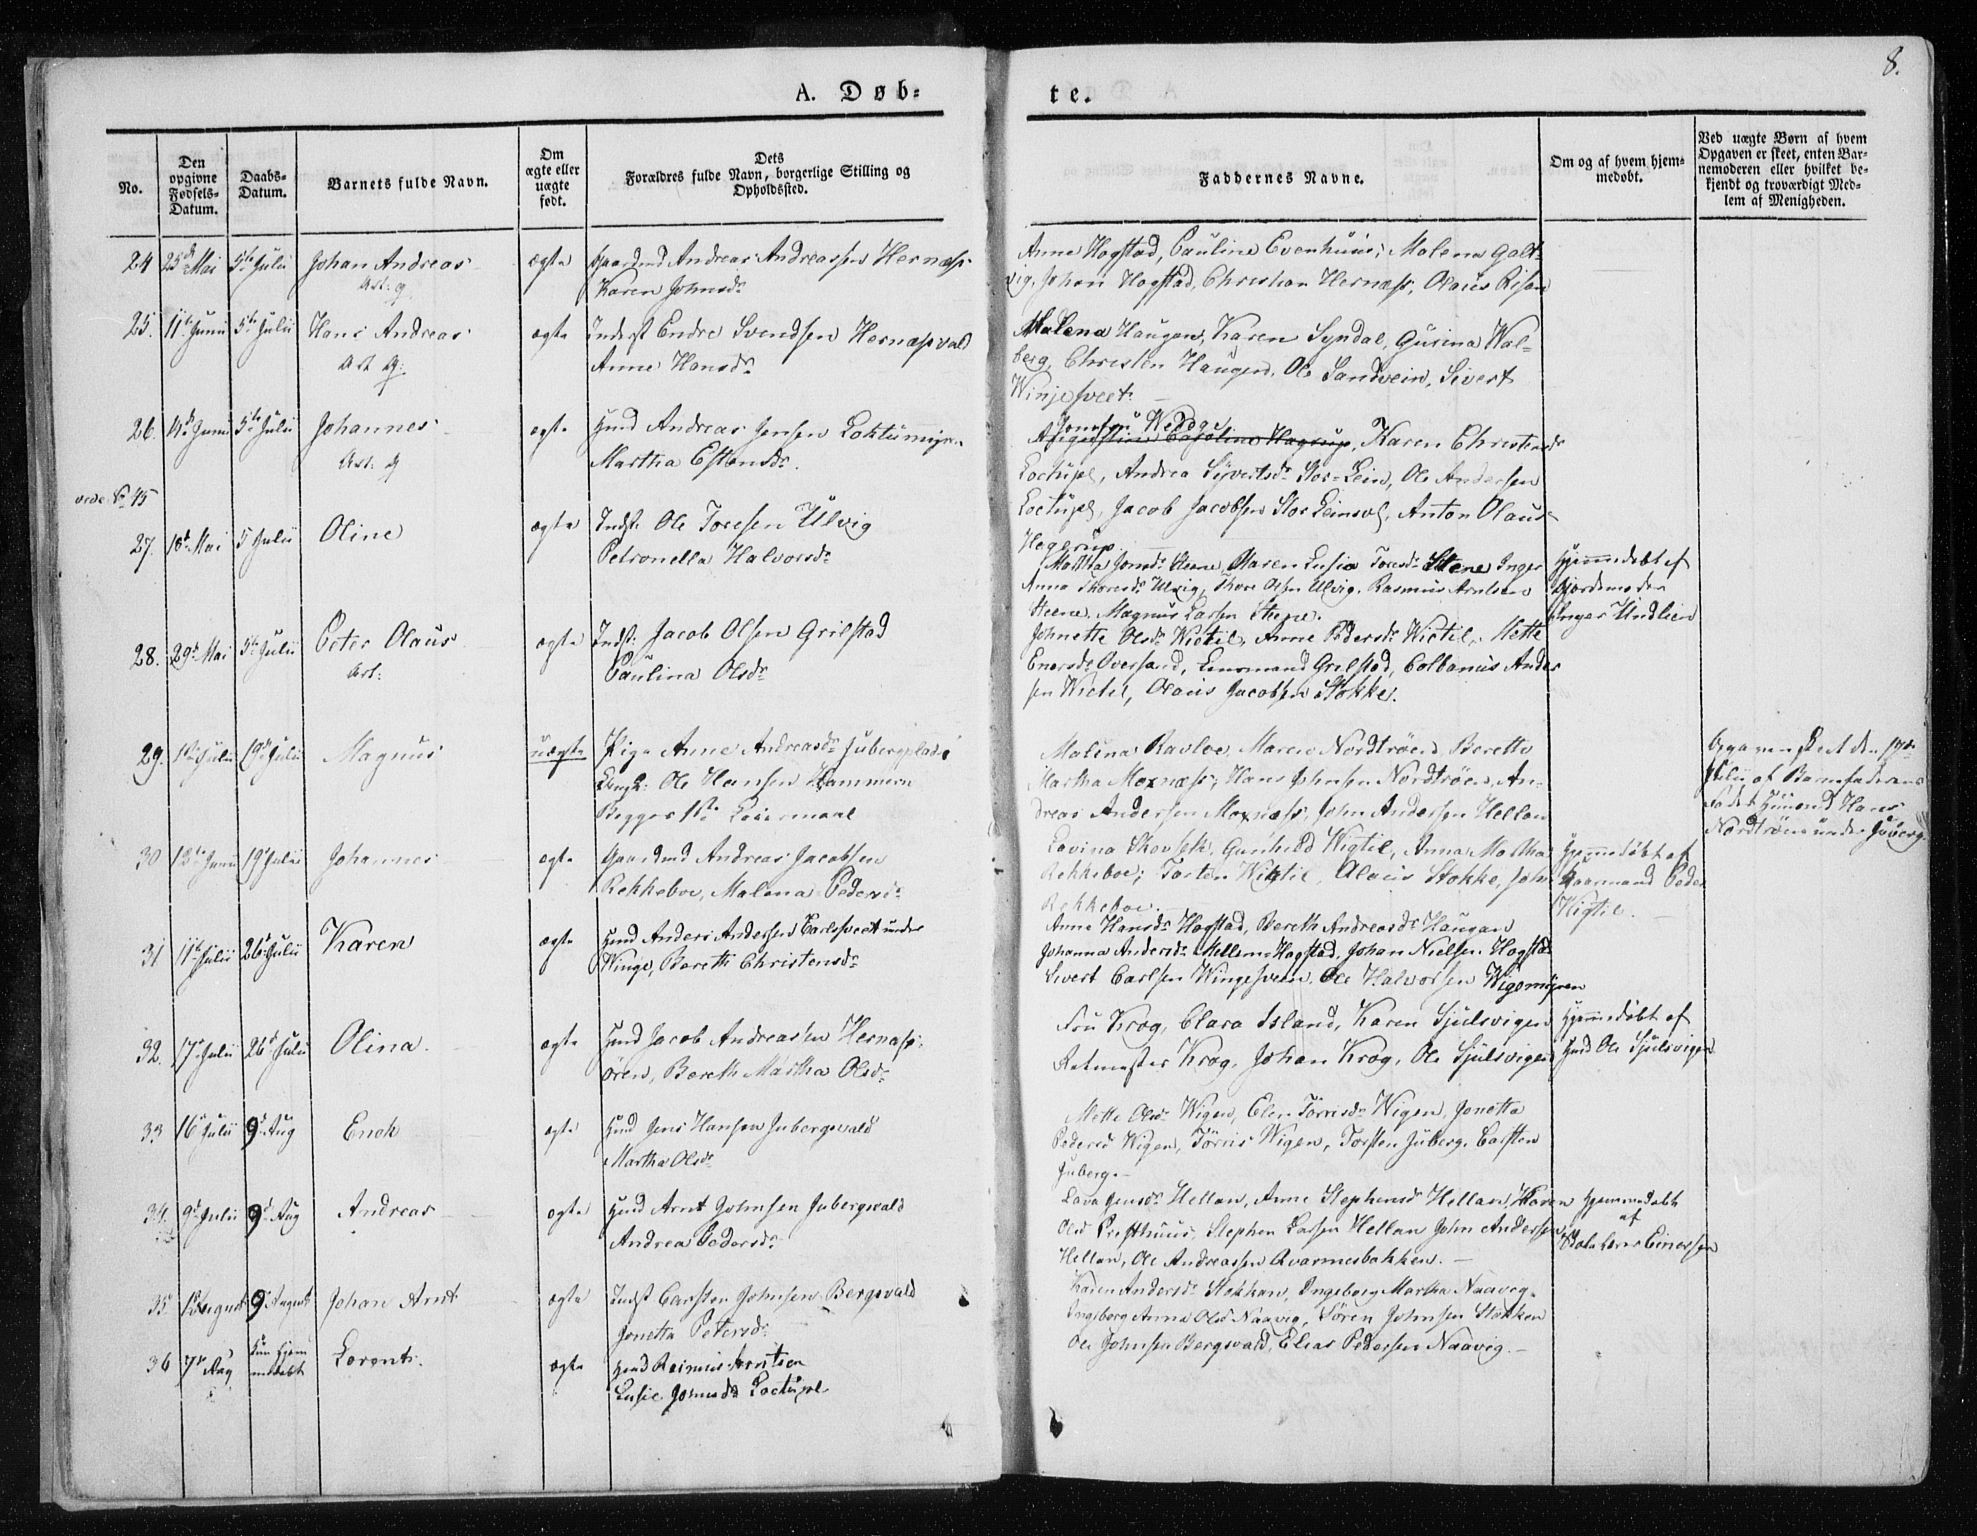 8.
A. Døb- te.
No.
Den opgivne Fødsels-Datum.
Daabs-Datum.
Barnets fulde Navn.
Om ægte eller uægte født.
Dets Forældres fulde Navn, borgerlige Stilling og Opholdssted.
Faddernes Navne.
Om og af hvem hjemmedøbt.
Ved uægte Børn af hvem Opgaven er skeet, enten Barnemoderen eller hvilket bekjendt og troværdigt Medlem af Menigheden.
24 25de Mai 5te Julii Johan Andreas ægte Gaardmd Andreas Andreassen Hernæs
Karen Johnsdr
Anne Hogstad, Pauline Evenhuus, Malena Galt-
vig, Johan Hogstad, Christian Hernæs, Olaus Risan
25. 11te Junii 5te Julii Hans Andreas ægte Inderst Endre Svendsen Hernæsvald
Anne Hansdr
Malena Haugan, Karen Syndal, Gurina Wal-
berg, Christen Haugen, Ole Sandvein, Sivert
Winjesveet
26. 4de Junii 5te Julii Johannes ægte Huusmd Andreas Jensen Loktumyr
Martha Estensdr.
Karen Christensdr
Loctupl, Andrea Sivertsdr Stor-Lein, Ole Andersen
Loctupl, Jacob Jacobsen Stor Leinsvl, Anton Olaus
Hegerup
vide No 45
27. 18de Mai 5 Julii Oline ægte Indst. Ole Toresen Ulvig
Petronella Halvorsdr
Martha Jonsdr Steene, Maren Lusia Toresdr Stene, Inger
Anna Thoresdr Ulvig, Thore Olsen Ulvig, Rasmus Arntsen
Steene, Magnus Larsen Steene.
Hjemmedøbt af
Gjordemoder
Inger Undlien
28. 29de Mai 5te Julii Peter Olaus ægte Indst: Jacob Olsen Grilstad
Paulina Olsdr
Johnette Olsdr Wictil, Anne Pedersdr Wictil, Mette
Enersdr Oversand, Grilstad, Colbanus Ander
sen Wictil, Olaus Jacobsen Stokke.
29. 1te Julii 19de Julii Magnus uægte Pige Anne Andreasdr Jubergplads
Ungk: Ole Hansen Hammern
Begges 1ste Leiermaal
Malina Ravloe, Maren Nordtrøen, Berette
Martha Moxnæss, Hans Johnsen Nordtrøen, An-
dreas Andersen Moxnæss, John Andersen Hellan
Opgaven skeet den 19de
Julii af Barnefaderens
Fader Huusmd Hans
Nordtrøen under Juberg
30 13de Junii 19de Julii Johannes ægte Gaardmd Andreas Jacobsen
Rekkeboe, Malena Pedersdr
Lovina Skovseth, Gunhild Wigtil, Anna Martha
Rekkeboe, Torten Wiktil, Olaus Stokke, John
Rekkeboe.
Hjemmedøbt af
Gaarmand Peder
Wigtil.
31 11te Julii 26de Julii Karen ægte Huusmd Anders Andersen Carlsveet under
Winge, Bereth Christensdr
Anne Hansdr Hogstad, Bereth Andreasdr Haugan
Johanna Andersdr Mellem-Hogstad, Johan Nielsen Hogstad
Sivert Carlsen Wingesveen, Ole Halvorsen Wigomyren
32. 17de Julii 26de Julii Olina. ægte Huusmd Jacob Andreassen Hernæs-
ören, Bereth Martha Olsdr
Fru Krog, Clara Island, Karen Sjulsvigen
Ritmester Krog, Johan Krog, Ole Sjulsvigen
Hjemmedøbt af
Huusmd Ole Sjulsvigen
33 16de Julii 9de Aug Enok ægte Huusmd Jens Hansen Jubergsvald
Martha Olsdr
Mette Olsdr Wigen, Elen Törrisdr Wigen, Jonetta
Pedersdr Wigen, Törris Wigen, Torsten Juberg, Carsten
Juberg.
34. 9de Julii 9de Aug Andreas ægte Huusmd Arnt Johnsen Jubergsvald
Andrea Pedersdr
Lava Jensdr Hellan, Anne Stephensdr Hellan, Karen
Olsdr Presthuus, Stephen Larsen Hellan, John Andersen
Hellan, Ole Andreassen Qvarmesbakken.
Hjemmedøbt
af
Einersen
35 1 August 9de August Johan Arnt ægte Indst Carsten Johnsen Bergsvald
Jonetta Petersdr
Karen Andersdr Stokkan, Ingeborg Martha Naavig,
Ingeborg Anna Olsdr Naavig, Sören Johnsen Stokken
Ole Johnsen Bergsvald, Elias Pedersen Naavig.
36 7de Aug Kun hjem-
medøbt Lorents. ægte Huusmd Rasmus Arntsen
Lusie Jonsdr Loctupl